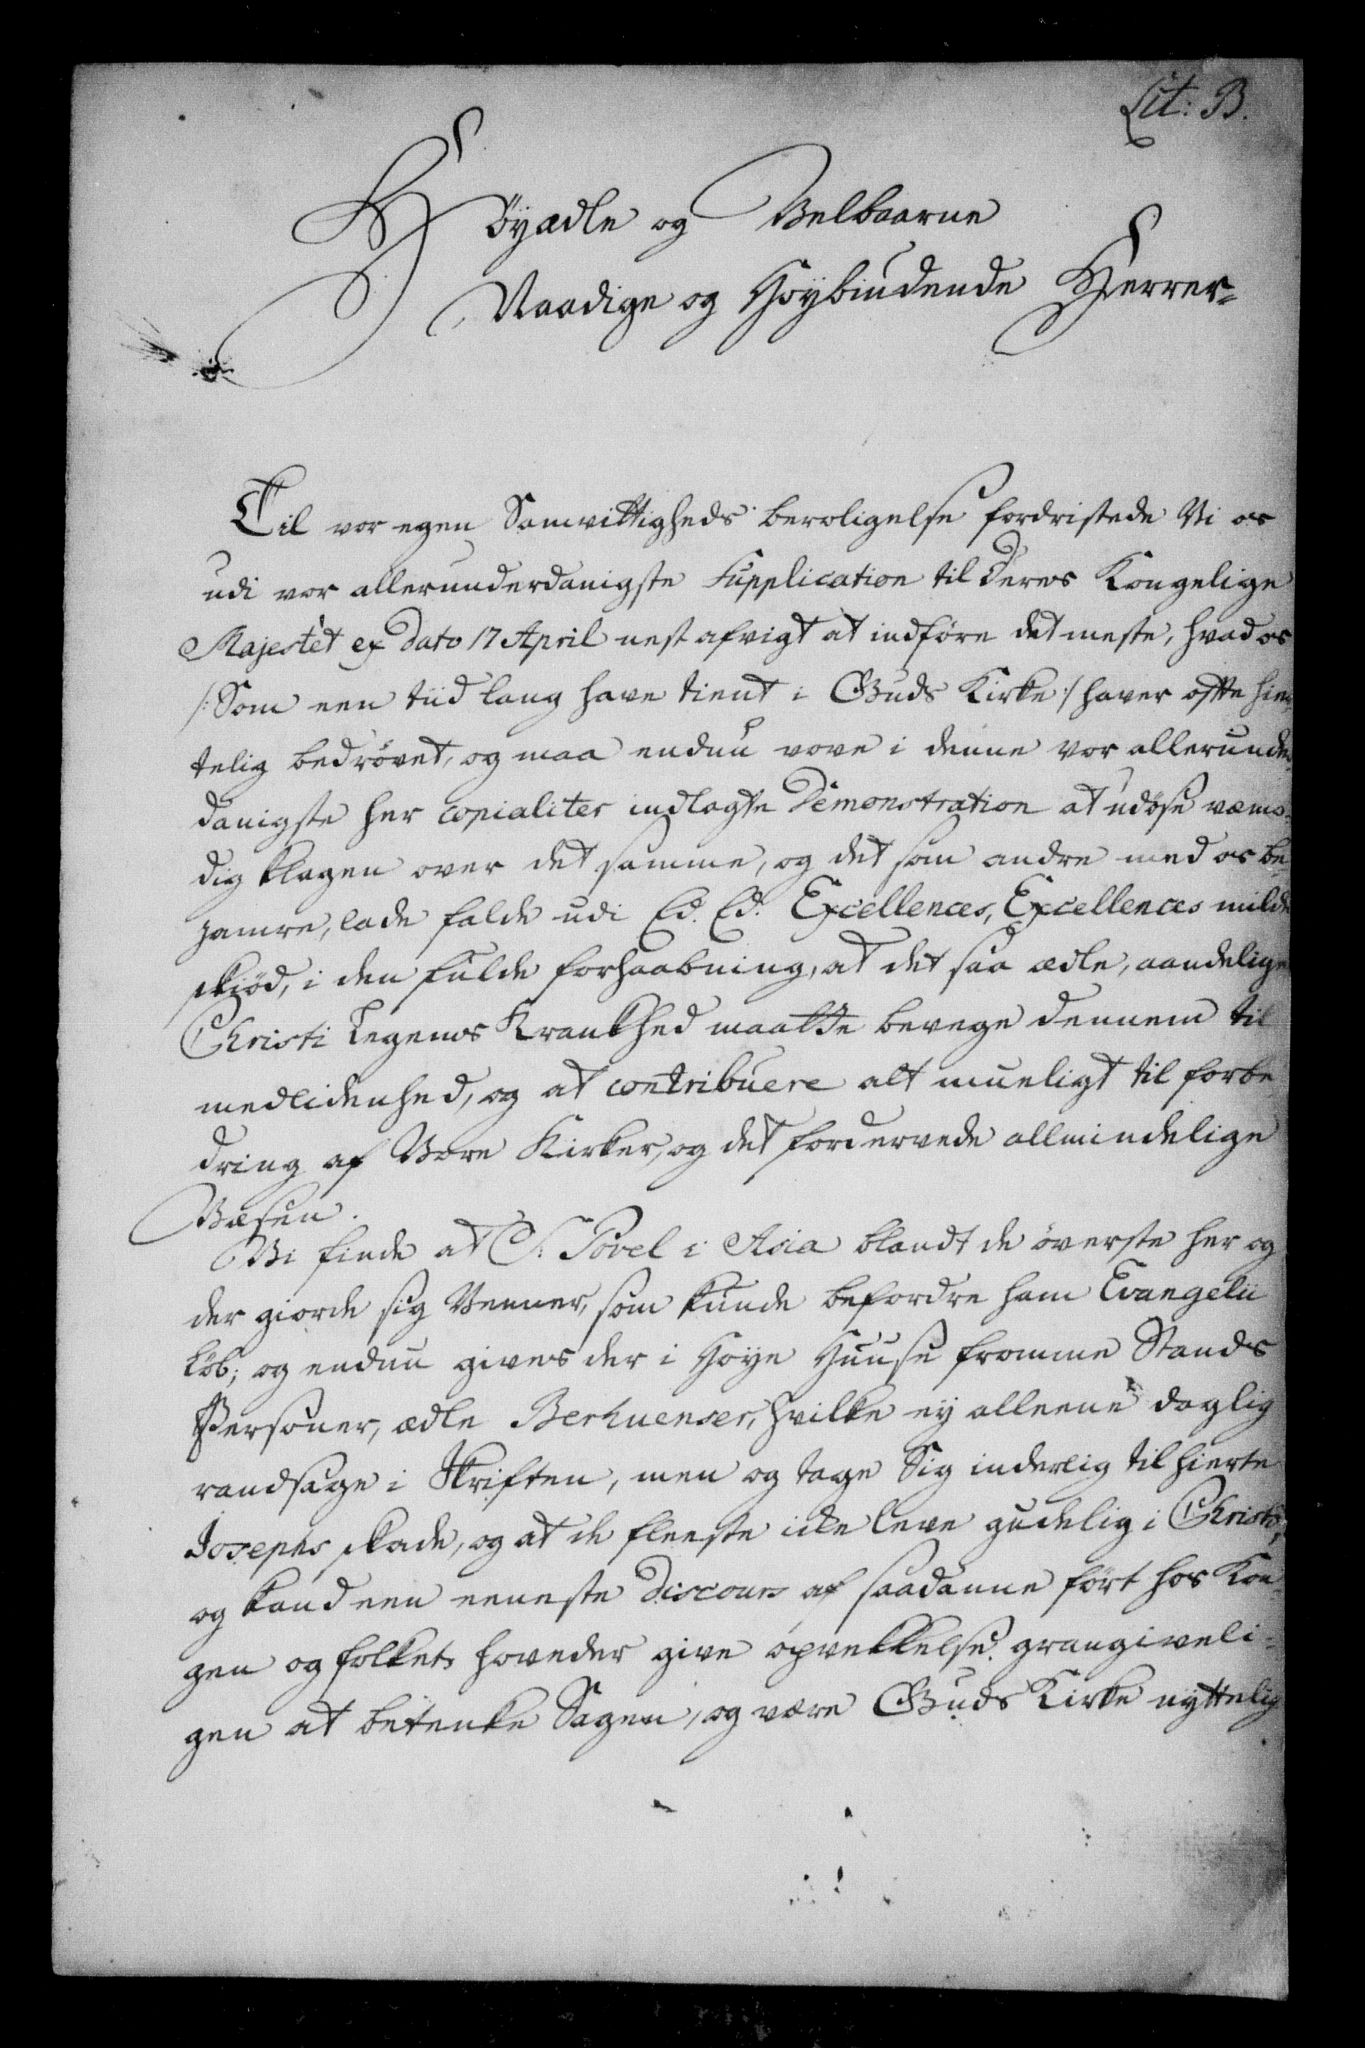 Lit: B.
Höyædle og Velbaarne
Naadige og Høybiudende Herrer
Til vor egen Samvittigheds beroligelse fordristede Vi os
udi vor allerunderdanigste Supplication til Deres Kongelige
Majestet ex Dato 17 April nest afvigt at indföre det meste, hvad os
/: Som een tiid lang have tient i Guds Kirke :/ haver ofte hier-
telig bedrövet, og maa endnu vove i denne vor allerunder-
danigste her copialiter indlagte Demonstration at udöse væmo-
dig klagen over det samme, og det som andre med os be-
jamre, lade falde udi Ed. Ed. Excellences, Excellences milde
skiöd, i den fulde forhaabning, at det saa ædle, aandelige
Christi Legems Krankhed maatte bevege dennem til
medlidenhed, og at contribuere alt mueligt til forbe-
dring af Vore Kirker, og det fordervede allmindelige
Væsen.
Vi finde at S: Povel i Asia blandt de överste her og
der giorde sig Venner, som kunde befordre ham Evangelii
löb; og endnu gives der i Høye Huuse fromme Stands
Personer, ædle Berhuenser, hvilke ey alleene daglig
randsage i Skriften, men og tage Sig inderlig til hierte
Josephs skade, og at de fleeste icke leve gudelig i Christo,
og kand een eeneste Discours af saadanne fört hos Kon-
gen og folkets hoveder give opvekkelse grangiveli-
gen at betenke Sagen, og være Guds Kirke nyttelig